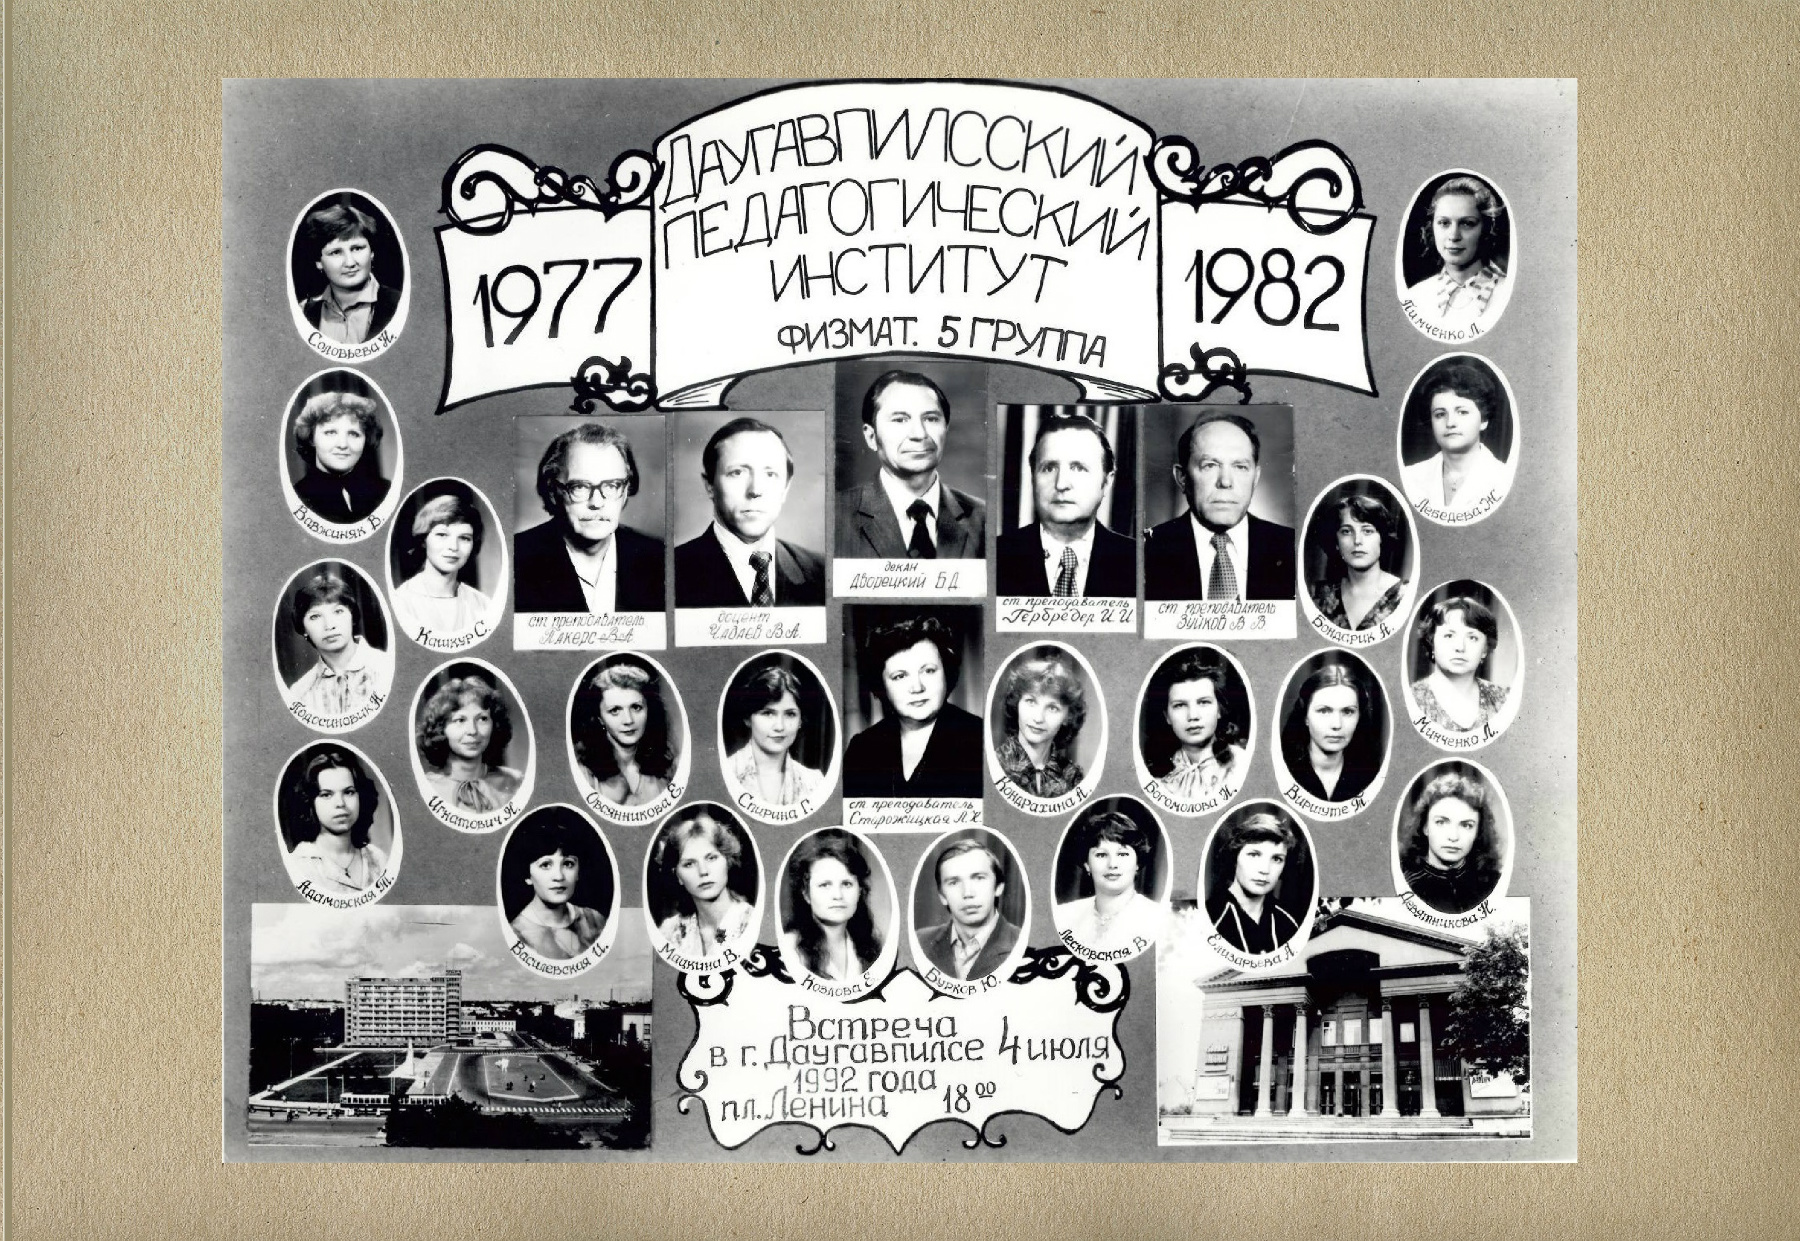 ДАУГАВПИЛССКИЙ
ПЕДАГОГИЧЕСКИЙ
ИНСТИТУТ
ФИЗМАТ. 5 ГРУППА
1977
1982
Соловьева Н.
Тимченко Л.
Вавжиняк В.
Лебедева Ж.
Кашкур С.
ст преподаватель
В А
доцент
Чадаев В.А.
декан
Дворецкий Б Д
ст преподаватель
Гербредер И И
ст преподаватель
Зуйков В В
Бондарик А.
Подосиновик Н.
Минченко Л.
Игнатович Н.
Овсянникова Е.
Спирина Г.
ст преподаватель
Старожицкая Л Х
Кондрахина А.
Богомолова Н.
Виршуте Т
Адамовская Т.
Василевская И.
Мацкина В.
Козлова Е
Бурков Ю.
Лесковская В.
Елизарьева А.
Девятникова Н.
Встреча
в г. Даугавпилсе 4 июля
1992 года
пл. Ленина 18 00